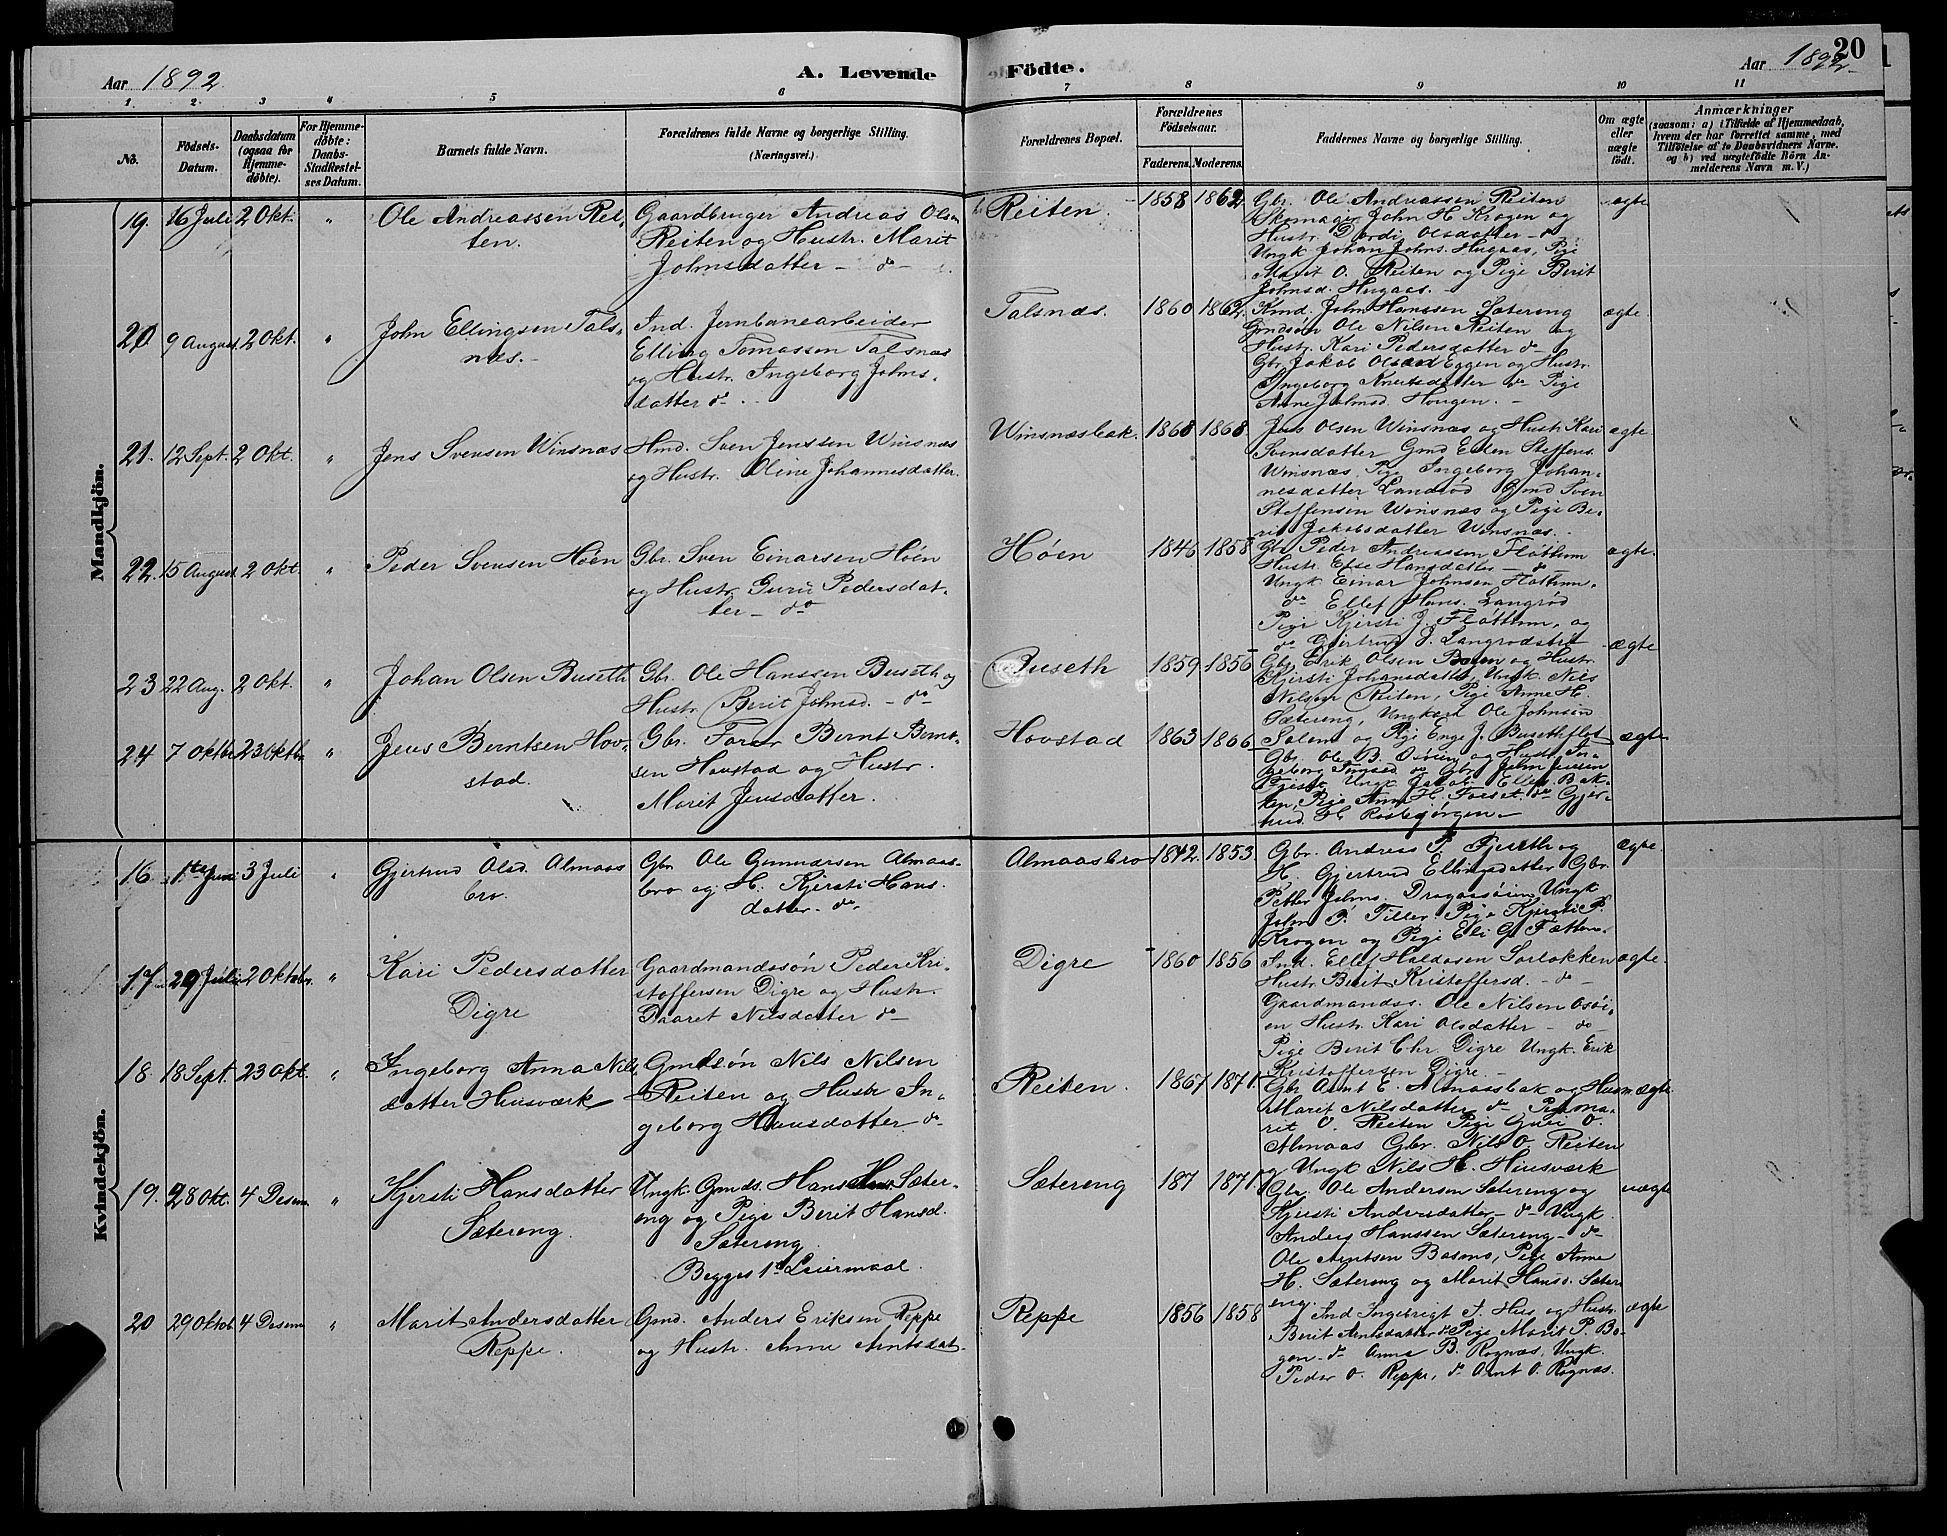 20
Aar 1892.
A. Levende Födte.
Aar 1892.
1 2 3 4 5 6 7 8 9 10 11
No.
Födsels-Datum.
Daabsdatum (ogsaa for Hjemme-döbte).
For Hjemme-döbte: Daabs-Stadfæstel-ses Datum.
Barnets fulde Navn.
Forældrenes fulde Navne og borgerlige Stilling. (Næringsvei.)
Forældrenes Bopæl.
Forældrenes Födselsaar.
Faderens. Moderens.
Faddernes Navne og borgerlige Stilling.
Om ægte eller uægte födt.
Anmærkninger
(saasom: a) i Tilfælde af Hjemmedaab, hvem der har forrettet samme, med Tilföielse af to Daabsvidners Navne. og b) ved uægtefödte Börn An-melderens Navn m. V.)
Mandkjön.
19. 16 Juli 2 Okt. " Ole Andreassen Rei-
ten.
Gaardbruger Andreas Olsen
Reiten og Hustr. Marit
Johnsdatter - do -
Reiten. 1858 1862
Gbr. Ole Andreassen Reiten
Skomager John H. Krogen og
Hustr. Dordi Olsdatter - do
Ungk. Johan Johns. Hugaas, Pige
Marit O. Reiten og Pige Berit
Johnsd. Hugaas. -
ægte
20. 9 August. 2 Okt. " John Ellingsen Tals-
næs. -
Ind. Jernbanearbeider
Elling Tomassen Talsnæs
og Hustr. Ingeborg Johns-
datter do
Talsnæs. 1860 1862.
Kmd. John Hanssen Sætereng
Gmdsön Ole Nilsen Reiten og
Hustr. Kari Pedersdatter do
Gbr. Jakob Eggen og Hustr.
Ingeborg Knutsdatter do Pige
Anne Johnsd. Hougen. -
ægte
21. 12 Sept. 2 Okt. " Jens Svensen Winsnæs
Hmd. Sven Jenssen Winsnæs
og Hustr. Oline Johannesdatter.
Winsnæsbak. 1868 1868
Jens Olsen Winsnæs og Hustr. Kari
Svensdatter Gmd Esten Steffens.
Winsnæs, Pige Ingeborg Johan-
nesdatter Langröd Gmd Sven
Steffensen Winsnæs og Pige Be-
rit Jakobsdatter Winsnæs.
ægte
22. 15 August. 2 Okt. " Peder Svensen Höen
Gbr. Sven Einarsen Höen
og Hustr. Guru Pedersdat-
ter - do
Höen 1846 1858
Gbr. Peder Andreassen Flöttum
Hustr. Else Hansdatter - do -
Ungk. Einar Johnsen Flöttum.
do Ellef Hans. Langröd
Pige Kjersti J. Flöttum, og
do Gjertrud J. Langrödsbet
ægte.
23 22 Aug. 2 Okt. " Johan Olsen Buseth
Gbr. Ole Hanssen Buseth og
Hustr. Berit Johnsd. - do -
Buseth 1859 1856
Gbr. Erik Olsen Boen og Hustr.
Kjersti Johansdatter, Ungk. Nils
Nilsen Reiten, Pige Anne H.
Sætereng, Ungkarl Ole Johnsen
Solem og Pige Enge J. Busethflot
ægte
24 7 Oktbr. 23 Oktbr. " Jens Berntsen Hov-
stad.
Gbr. Forar Bernt Bernt-
sen Hovstad og Hustr.
Marit Jensdatter.
Hovstad 1863 1866
Gbr. Ole B. Osöien og Hustr. In-
geborg Tomasd. do Gbr. John Jensen
Ungk. Jakob Ellefs. Bak-
ken, Pige Anne H. Foeset. do Gjer-
trud H. Rosbjörgen. -
ægte
Kvindekjön.
16. 1ste Juni 3 Juli " Gjertrud Olsd. Almaas
bro.
Gbr. Ole Gunnarsen Almaas-
bro og H. Kjersti Hans-
datter - do.
Almaasbro 1842. 1853.
Gbr. Andreas P. Fjeseth og
H. Gjertrud Ellingsdatter Gbr.
Petter Johns. Dragaasöien Ungk.
John P. Tiller. Pige Kjersti P.
Krogen og Pige Eli G. Fætten.
ægte.
17. 29 Juli 2 Oktober. " Kari Pedersdatter
Digre
Gaardmandssön Peder Kri-
stoffersen Digre og Hustr.
Gaaret Nilsdatter do -
Digre 1860 1856
Ind. Ellef Haldosen Sørløkken
Hustr. Berit Kristoffersd. - do -
Gaardmandss. Ole Nilsen Osöi-
en Hustr. Kari Olsdatter - do -
Pige Berit Chr. Digre Ungk. Erik
Kristoffersen Digre. -
ægte.
18. 18 Sept. 23 Okt. " Ingeborg Anna Nils
datter Husværk
Gmdsön Nils Nilsen
Reiten og Hustr. In-
geborg Hansdatter do -
Reiten. 1867 1871.
Gbr. Arnt E. Almaasbak og Hustr
Marit Nilsdatter do - Pige Ma-
rit O. Reiten Pige Guri O.
Almaas Gbr. Nils O. Reiten
og Ungk. Nils H. Husværk
ægte.
19. 28 Okt. 4 Desem " Kjersti Hansdatter
Sætereng.
Ungk. Gmds. Hans Sæter-
eng og Pige Berit Hansd.
Sætereng.
Begges 1ste Leiermaal.
Sætereng 187 1871.
Gbr. Ole Andersen Sætereng og
Kjersti Andersdatter - do - Ungk.
Anders Hanssen Sætereng - do -
Ole Arntsen Basmo, Pige Anne
H. Sætereng og Marit Hansd. Sæter
eng.
uægte
20 29 Oktob. 4 Desem " Marit Andersdatter
Reppe.
Gmd. Anders Eriksen Reppe
og Hustr. Anne Arntsdat.
Reppe 1856 1858
Ind Ingebrigt S. Hus og Hustr.
Berit Arntsdatter do Pige Marit P. Bo-
gen - do Anna B. Rognæs, Ungk.
Peder O. Reppe, do Arnt O. Rognæs.
ægte